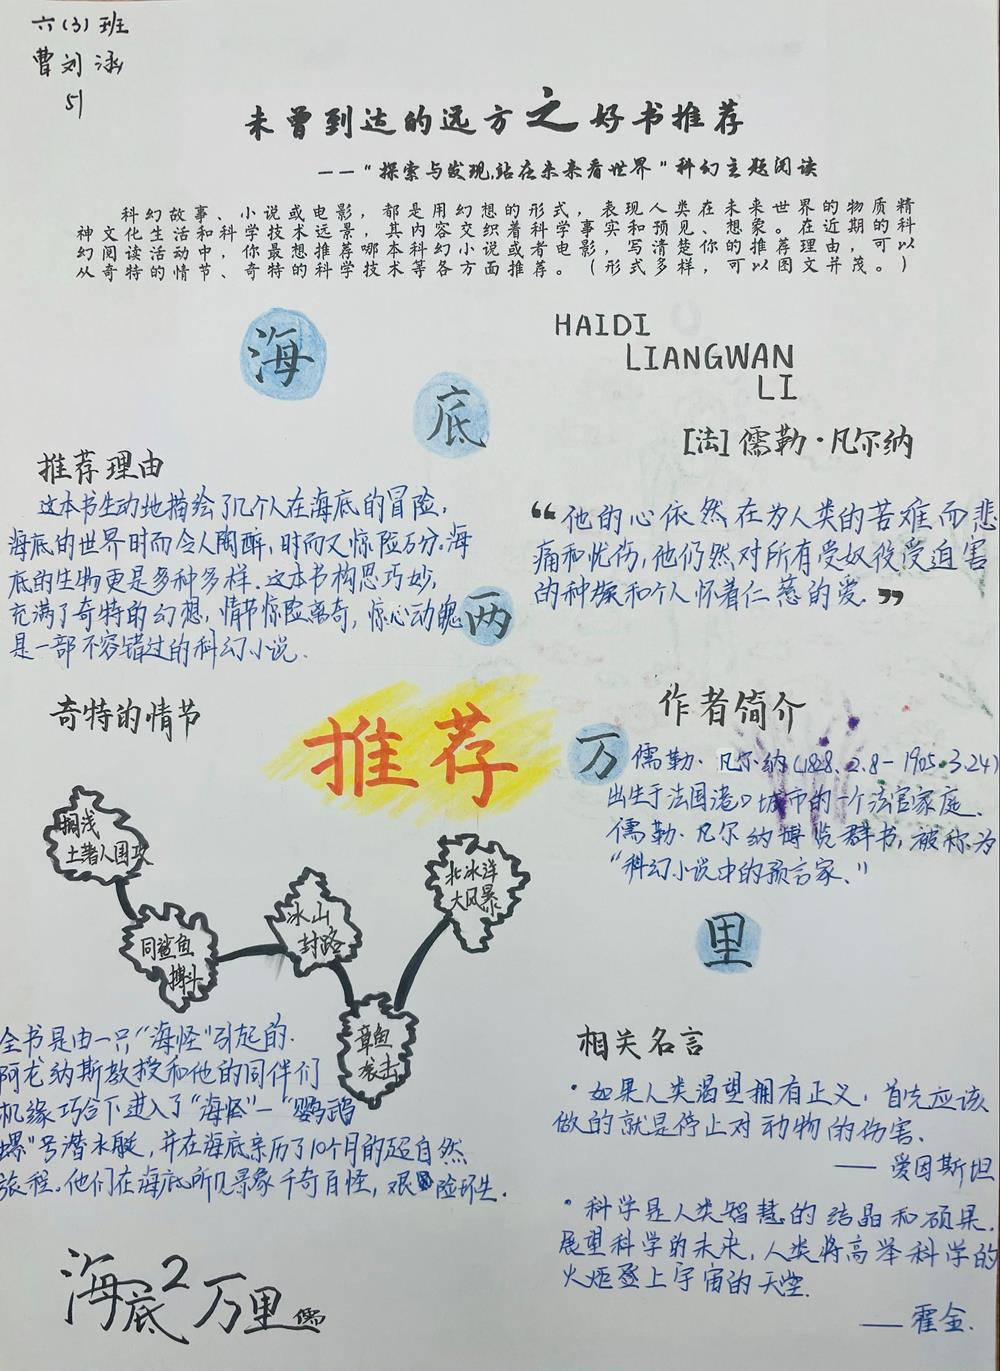 六(3)班
曹刘涵
51
未曾到达的远方之好书推荐
——“探索与发现,站在未来看世界”科幻主题阅读
科幻故事、小说或电影，都是用幻想的形式，表现人类在未来世界的物质精
神文化生活和科学技术远景，其内容交织着科学事实和预见、想象。在近期的科
幻阅读活动中，你最想推荐哪本科幻小说或者电影，写清楚你的推荐理由，可以
从奇特的情节、奇特的科学技术等各方面推荐。（形式多样，可以图文并茂。）
海
底
两
万
里
HAIDI
LIANGWAN
LI
[法]儒勒·凡尔纳
推荐理由
这本书生动地描绘了几个人在海底的冒险,
海底的世界时而令人陶醉,时而又惊险万分.海
底的生物更是多种多样.这本书构思巧妙,
充满了奇特的幻想,情节惊险离奇,惊心动魄
是一部不容错过的科幻小说.
“他的心依然在为人类的苦难而悲
痛和忧伤,他仍然对所有受奴役受迫害
的种族和个人怀着仁慈的爱.”
奇特的情节
推荐
搁浅
土著人围攻
同鲨鱼
搏斗
冰山
封路
章鱼
袭击
北冰洋
大风暴
全书是由一只“海怪”引起的.
阿龙纳斯教授和他的同伴们
机缘巧合下进入了“海怪”—“鹦鹉
螺”号潜水艇,并在海底亲历了10个月的超自然
旅程.他们在海底所见景象千奇百怪,艰险环生.
海底2万里 儒
作者简介
儒勒·凡尔纳(1828.2.8-1905.3.24)
出生于法国港口城市的一个法官家庭.
儒勒·凡尔纳博览群书,被称为
“科幻小说中的预言家.”
相关名言
·如果人类渴望拥有正义,首先应该
做的就是停止对动物的伤害.
——爱因斯坦
·科学是人类智慧的结晶和硕果,
展望科学的未来,人类将高举科学的
火炬登上宇宙的天堂.
——霍金.